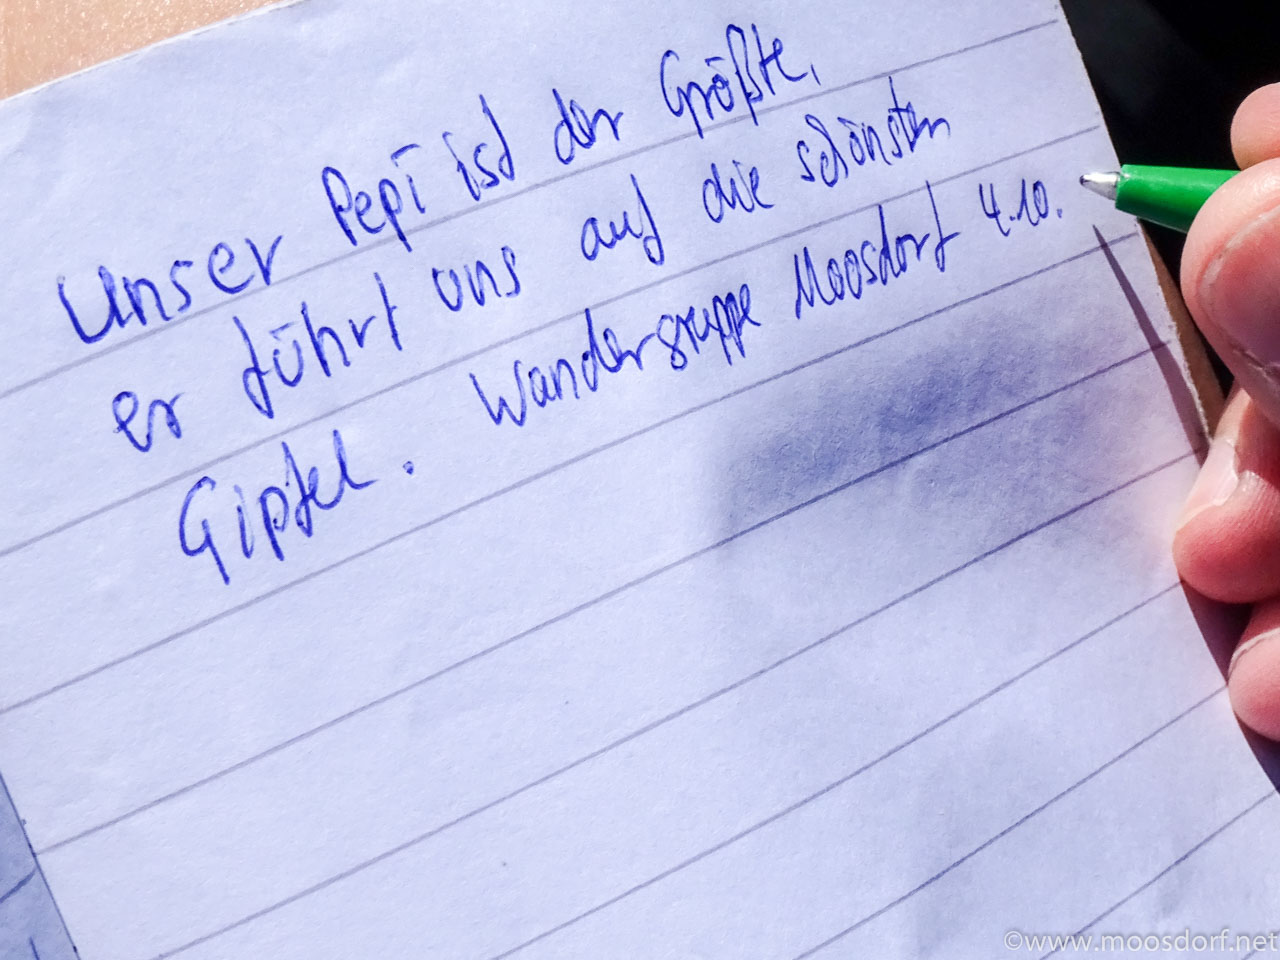 Unser Pepi ist der Größte,
er führt uns auf die schönsten
Gipfel. Wandergruppe Moosdorf 4.10.
©www.moosdorf.net